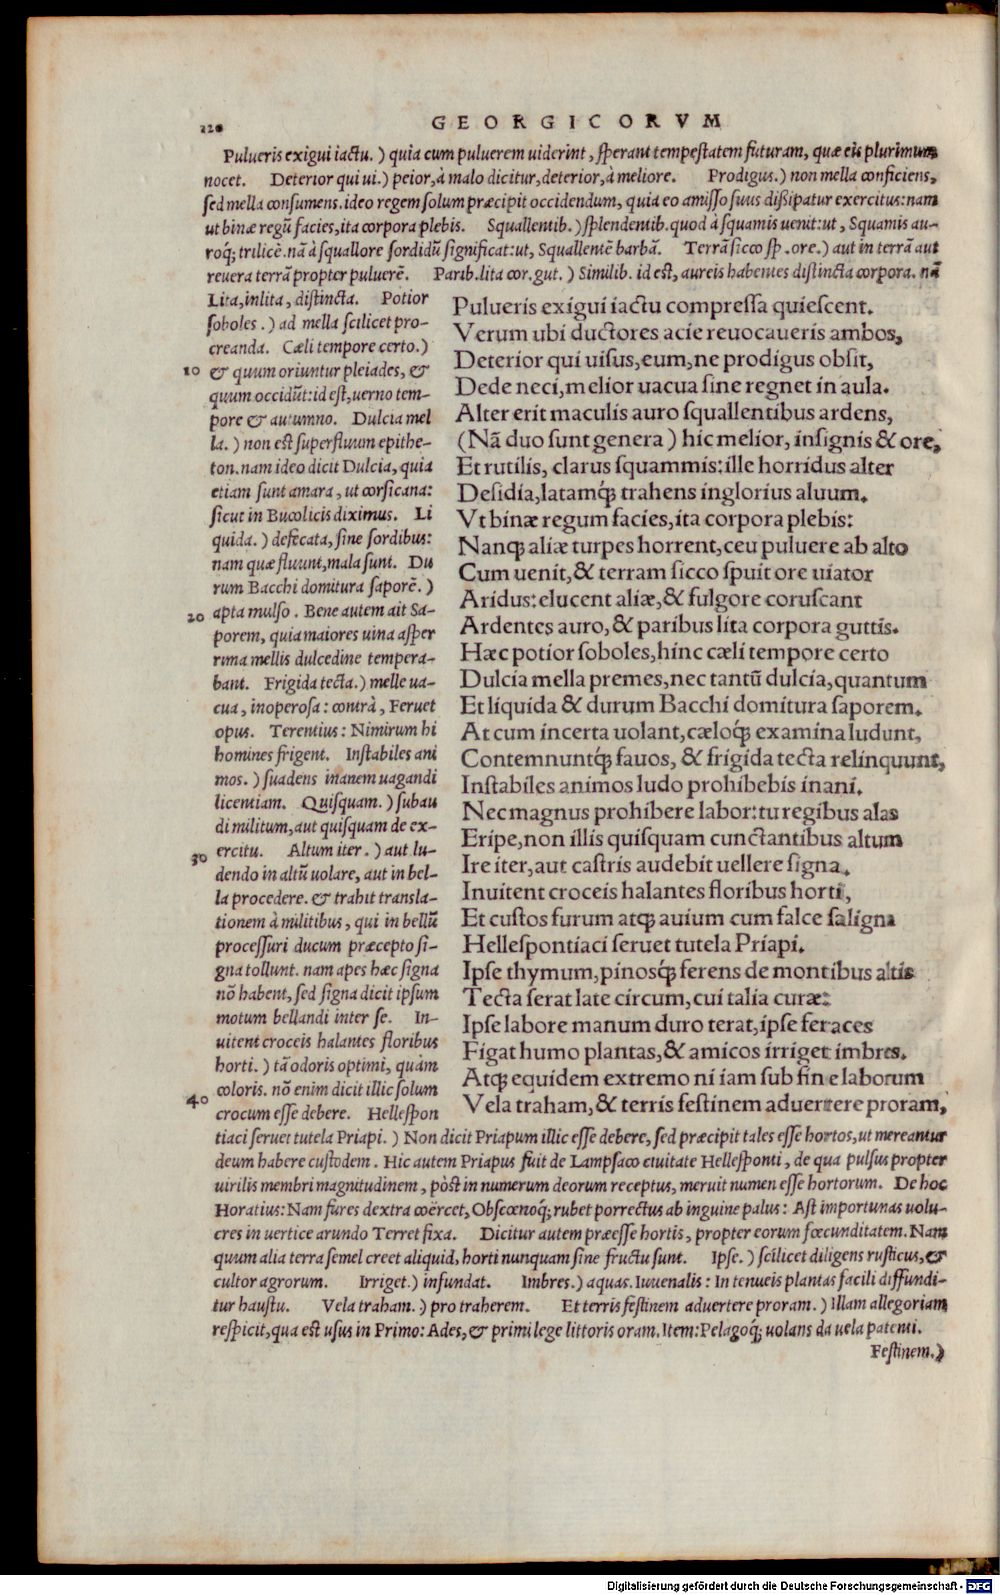 220
GEORGICORVM
Pulueris exigui iactu. ) quia cum puluerem uiderint, sperant tempestatem futuram, quæ eis plurimum
nocet. Deterior qui ui. ) peior, à malo dicitur, deterior, à meliore. Prodigus. ) non mella conficiens,
sed mella consumens. ideo regem solum præcipit occidendum, quia eo amisso suus dissipatur exercitus: nam
ut binæ regũ facies, ita corpora plebis. Squallentib. ) splendentib. quod à squamis uenit: ut, Squamis au-
roq́; trilicẽ. nã à squallore sordidũ significat: ut, Squallentẽ barbã. Terrã sicco sp. ore. ) aut in terrã aut
reuera terrã propter puluerẽ. Parib. lita cor. gut. ) Similib. id est, aureis habentes distincta corpora. nã
Lita, inlita, distincta. Potior
soboles. ) ad mella scilicet pro-
creanda. Cæli tempore certo. )
10 & quum oriuntur pleiades, &
quum occidũt: id est, uerno tem-
pore & autumno. Dulcia mel
la. ) non est superfluum epithe-
ton. nam ideo dicit Dulcia, quia
etiam sunt amara, ut corsicana:
sicut in Bucolicis diximus. Li
quida. ) defecata, sine sordibus:
nam quæ fluunt, mala sunt. Du
rum Bacchi domitura saporẽ. )
20 apta mulso. Bene autem ait Sa-
porem, quia maiores uina asper
rima mellis dulcedine tempera-
bant. Frigida tecta. ) melle ua-
cua, inoperosa: contrà, Feruet
opus. Terentius: Nimirum hi
homines frigent. Instabiles ani
mos. ) suadens inanem uagandi
licentiam. Quisquam. ) subau
di militum, aut quisquam de ex-
30 ercitu. Altum iter. ) aut lu-
dendo in altũ uolare, aut in bel-
la procedere. & trahit transla-
tionem à militibus, qui in bellũ
processuri ducum præcepto si-
gna tollunt. nam apes hæc signa
nõ habent, sed signa dicit ipsum
motum bellandi inter se. In-
uitent croceis halantes floribus
horti. ) tã odoris optimi, quàm
coloris. nõ enim dicit illic solum
40 crocum esse debere. Hellespon
Pulueris exigui iactu compressa quiescent.
Verum ubi ductores acie reuocaueris ambos,
Deterior qui uisus, eum, ne prodigus obsit,
Dede neci, melior uacua sine regnet in aula.
Alter erit maculis auro squallentibus ardens,
(Nã duo sunt genera) hic melior, insignis & ore,
Et rutilis, clarus squammis: ille horridus alter
Desidia, latamq́; trahens inglorius aluum.
Vt binæ regum facies, ita corpora plebis:
Nanq; aliæ turpes horrent, ceu puluere ab alto
Cum uenit, & terram sicco spuit ore uiator
Aridus: elucent aliæ, & fulgore coruscant
Ardentes auro, & paribus lita corpora guttis.
Hæc potior soboles, hinc cæli tempore certo
Dulcia mella premes, nec tantũ dulcia, quantum
Et liquida & durum Bacchi domitura saporem.
At cum incerta uolant, cæloq́; examina ludunt,
Contemnuntq́; fauos, & frigida tecta relinquunt,
Instabiles animos ludo prohibebis inani.
Nec magnus prohibere labor: tu regibus alas
Eripe, non illis quisquam cunctantibus altum
Ire iter, aut castris audebit uellere signa.
Inuitent croceis halantes floribus horti,
Et custos furum atq; auium cum falce saligna
Hellespontiaci seruet tutela Priapi.
Ipse thymum, pinosq́; ferens de montibus altis
Tecta serat late circum, cui talia curæ:
Ipse labore manum duro terat, ipse feraces
Figat humo plantas, & amicos irriget imbres.
Atq; equidem extremo ni iam sub fine laborum
Vela traham, & terris festinem aduertere proram,
tiaci seruet tutela Priapi. ) Non dicit Priapum illic esse debere, sed præcipit tales esse hortos, ut mereantur
deum habere custodem. Hic autem Priapus fuit de Lampsaco ciuitate Hellesponti, de qua pulsus propter
uirilis membri magnitudinem, pòst in numerum deorum receptus, meruit numen esse hortorum. De hoc
Horatius: Nam fures dextra coërcet, Obscœnoq́; rubet porrectus ab inguine palus: Ast importunas uolu-
cres in uertice arundo Terret fixa. Dicitur autem præesse hortis, propter eorum fœcunditatem. Nam
quum alia terra semel creet aliquid, horti nunquam sine fructu sunt. Ipse. ) scilicet diligens rusticus, &
cultor agrorum. Irriget. ) infundat. Imbres. ) aquas. Iuuenalis: In tenueis plantas facili diffundi-
tur haustu. Vela traham. ) pro traherem. Et terris festinem aduertere proram. ) Illam allegoriam
respicit, qua est usus in Primo: Ades, & primi lege littoris oram. Item: Pelagoq́; uolans da uela patenti.
Festinem. )
Digitalisierung gefördert durch die Deutsche Forschungsgemeinschaft - DFG